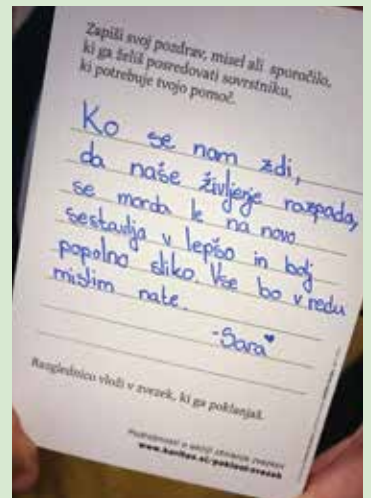 Zapiši svoj pozdrav, misel ali sporočilo,
ki ga želiš posredovati sovrstniku,
ki potrebuje tvojo pomoč.
Ko se nam zdi,
da naše življenje razpada,
se morda le na novo
sestavlja v lepšo in bolj
popolno sliko. Vse bo v redu
mislim nate.
-Sara♥
Razglednico vloži v zvezek, ki ga poklanjaš.
www.karitas.si/poklonizvezek